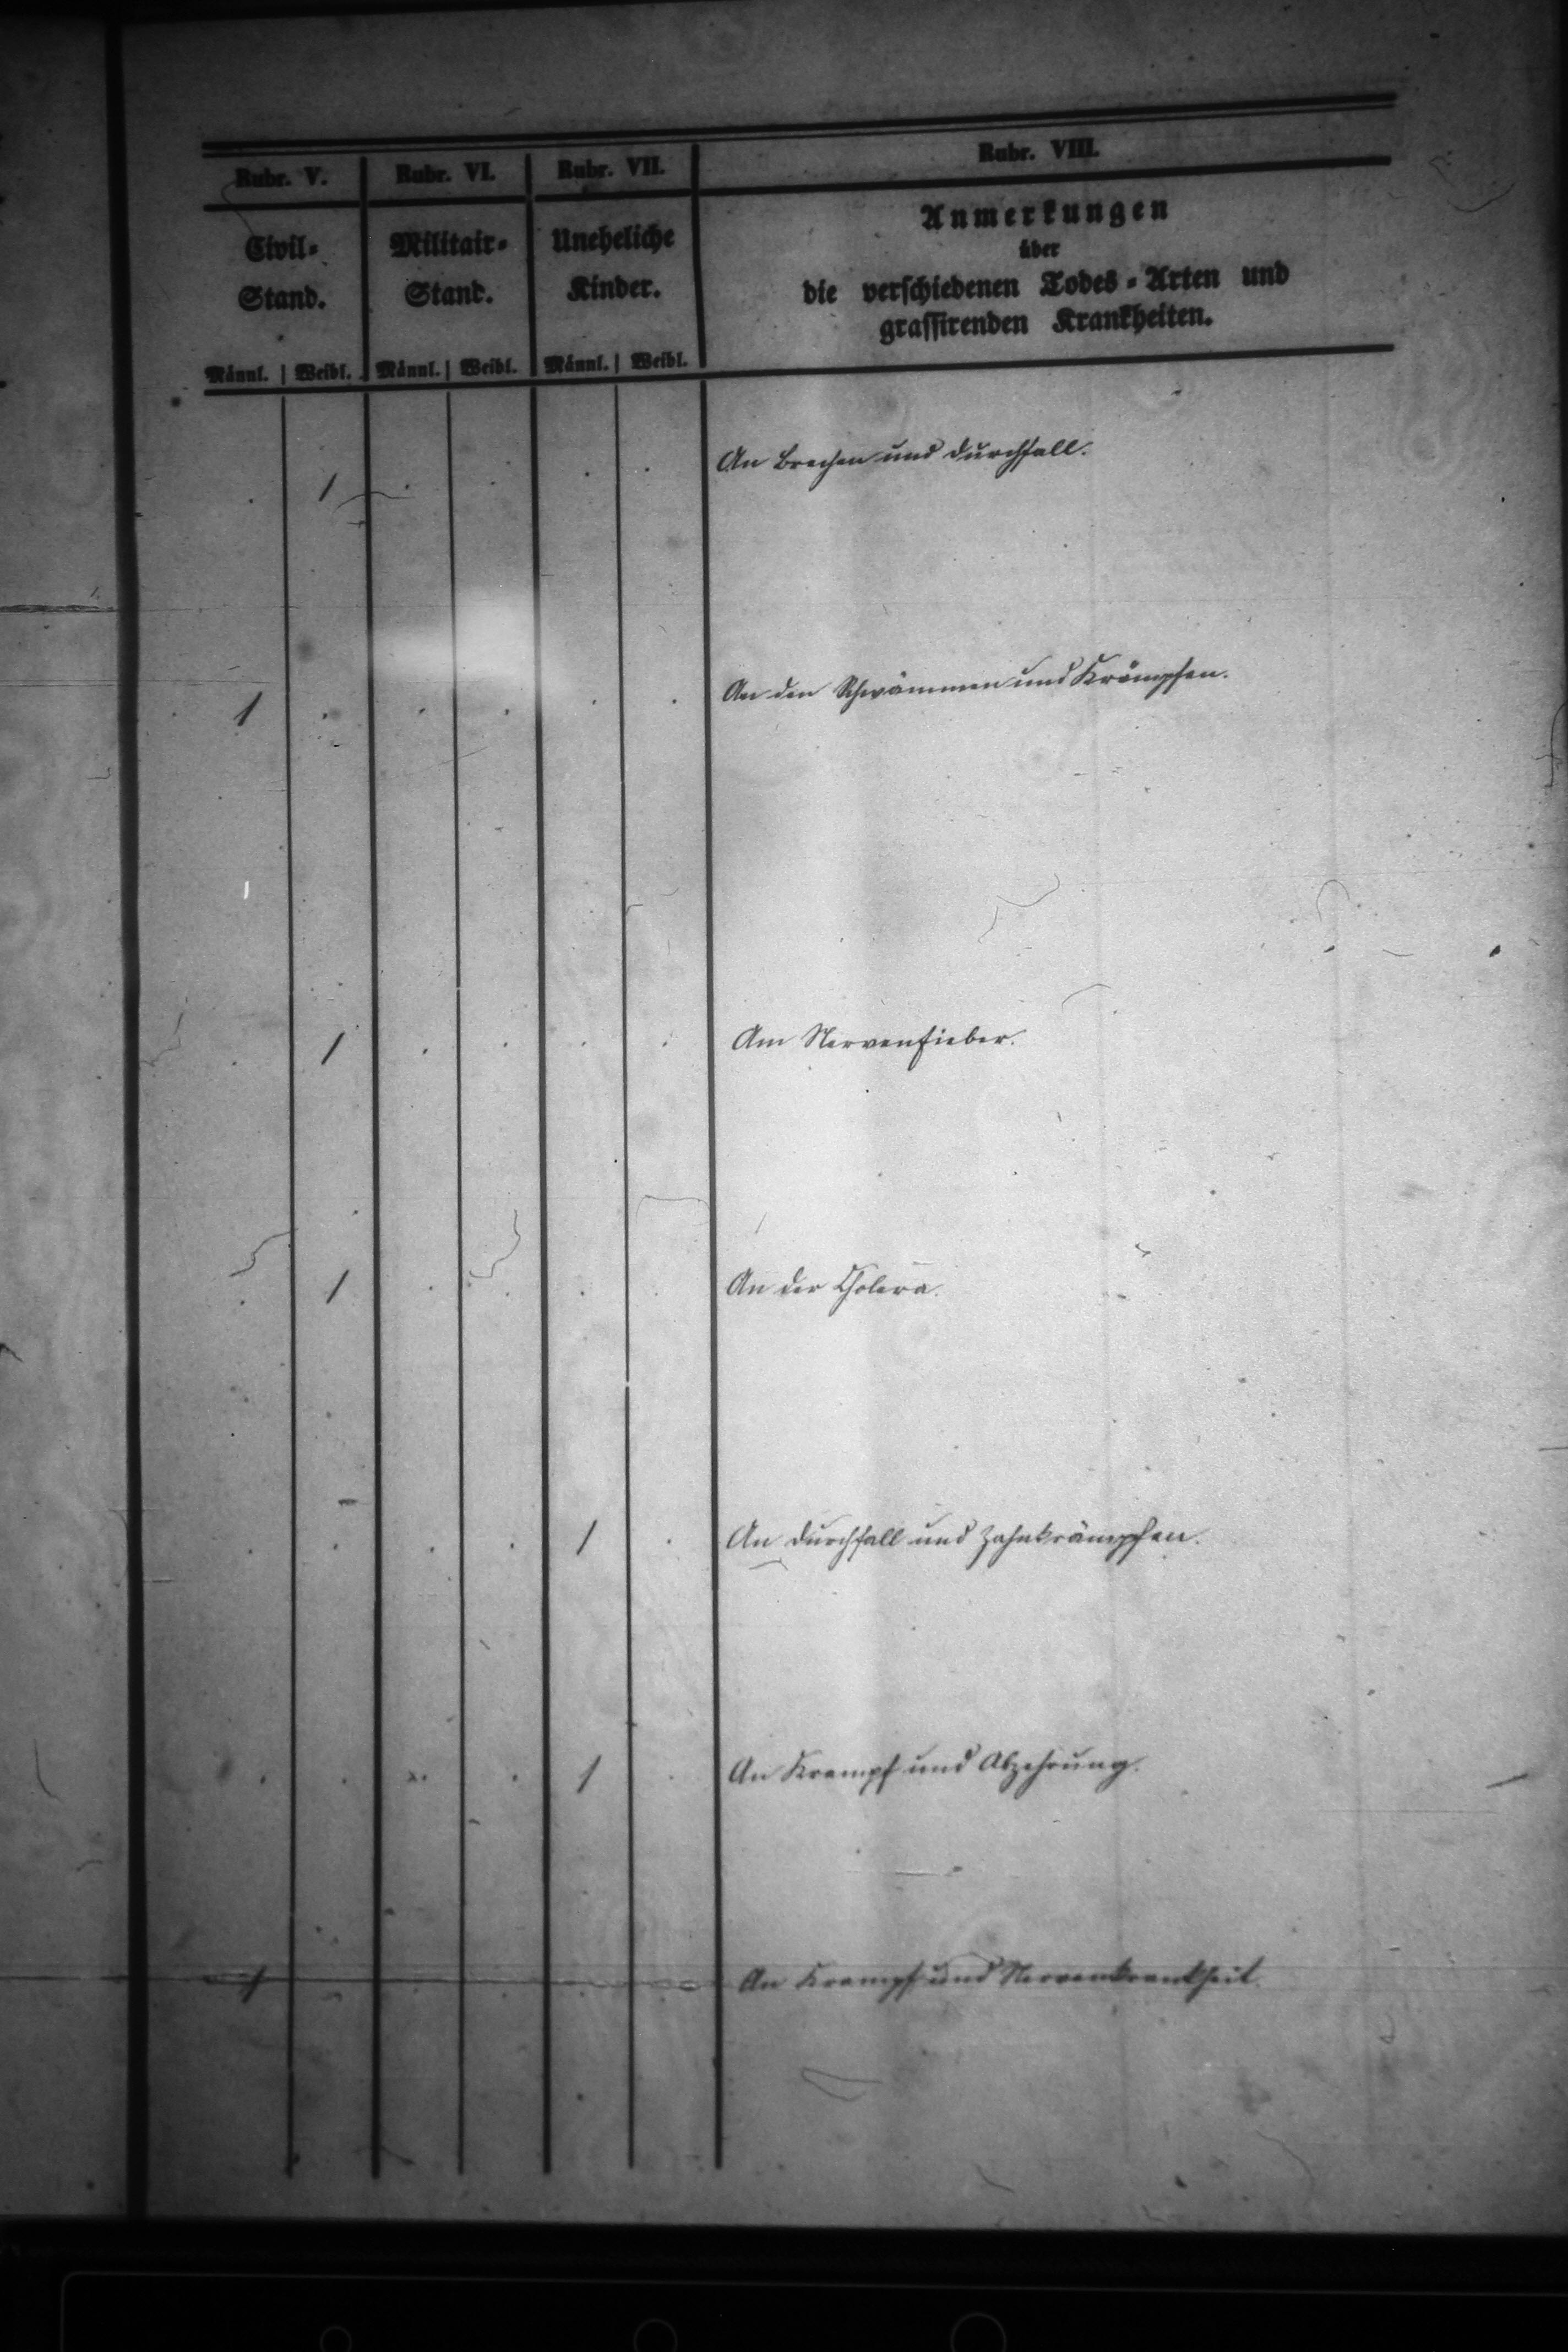 Rubr. V. Rubr. VI. Rubr. VII. Rubr. VIII.
Civil= Militair= Uneheliche Anmerkungen
Stand. Stand. Kinder. über
die verschiedenen Todes=Arten und
grassirenden Krankheiten.
Männl. | Weibl. Männl. | Weibl. Männl. | Weibl.
. 1 . . . . An Brechen und Durchfall.
1 . . . . . An den Schwämmen und Krämpfen.
. 1 . . . . Am Nervenfieber.
. 1 . . . . An der Cholera.
. . . . 1 . An Durchfall und Zahnkrämpfen.
. . . . 1 . An Krampf und Abzehrung.
1 An Krampf und Nervenkrankheit.